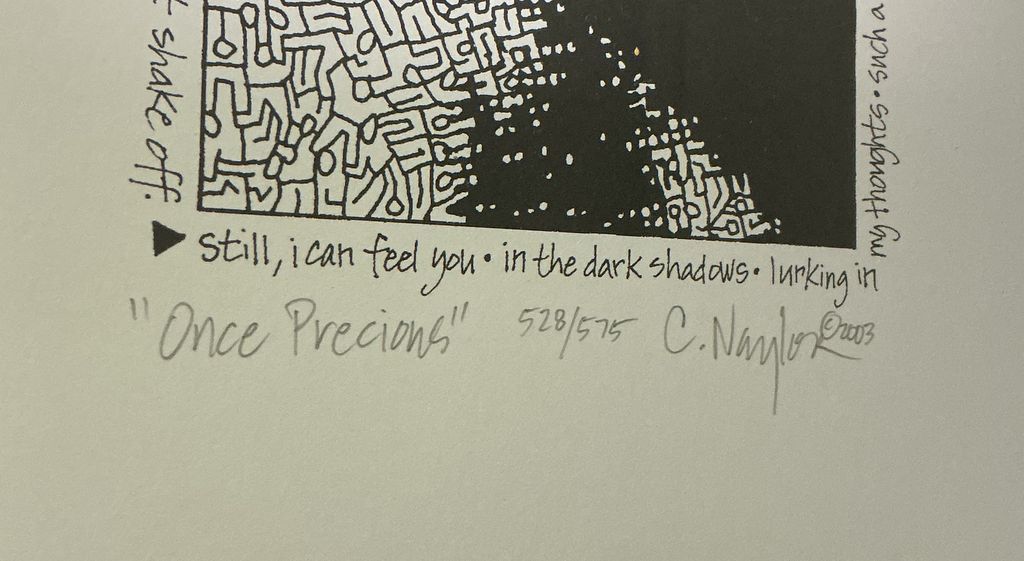 t shake off.
still, i can feel you • in the dark shadows • lurking in
my thoughts • such a
"Once Precious" 528/575 C. Naylor ©2003